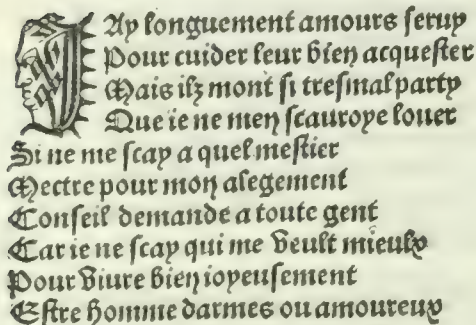 Jay longuement amours seruy
Pour cuider leur bien acquester
Mais ilz mont si tresmal party
Que ie ne men scauroye louer
Si ne me scay a quel mestier
Mectre pour mon alegement
Conseil demande a toute gent
Car ie ne scay qui me veult mieulx
Pour viure bien ioyeusement
Estre homme darmes ou amoureux